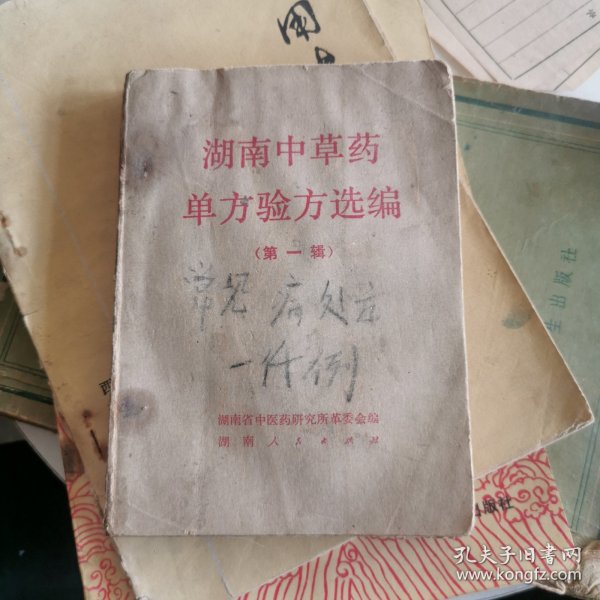 用
湖南中草药
单方验方选编
(第一辑)
常见病处方
一仟例
湖南省中医药研究所革委会编
湖南人民出版社
生出版社
出版社
孔夫子旧书网
kongfz.com